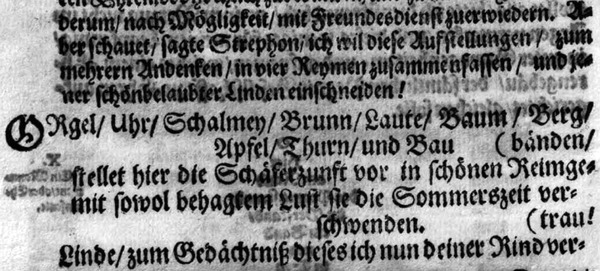 derum/ nach Mögligkeit/ mit Freundesdienst zuerwiedern. A-
ber schauet/ sagte Strephon/ ich wil diese Aufstellungen/ zum
mehrern Andenken/ in vier Reymen zusammenfassen/ und je-
ner schönbelaubter Linden einschneiden!
ORgel/ Uhr/ Schalmey/ Brunn/ Laute/ Baum/ Berg/
Apfel/ Thurn/ und Bau (bänden/
stellet hier die Schäferzunft vor in schönen Reimge-
mit sowol behagtem Lust sie die Sommerszeit ver-
schwenden. (trau!
Linde/ zum Gedächtniß dieses ich nun deiner Rind ver-